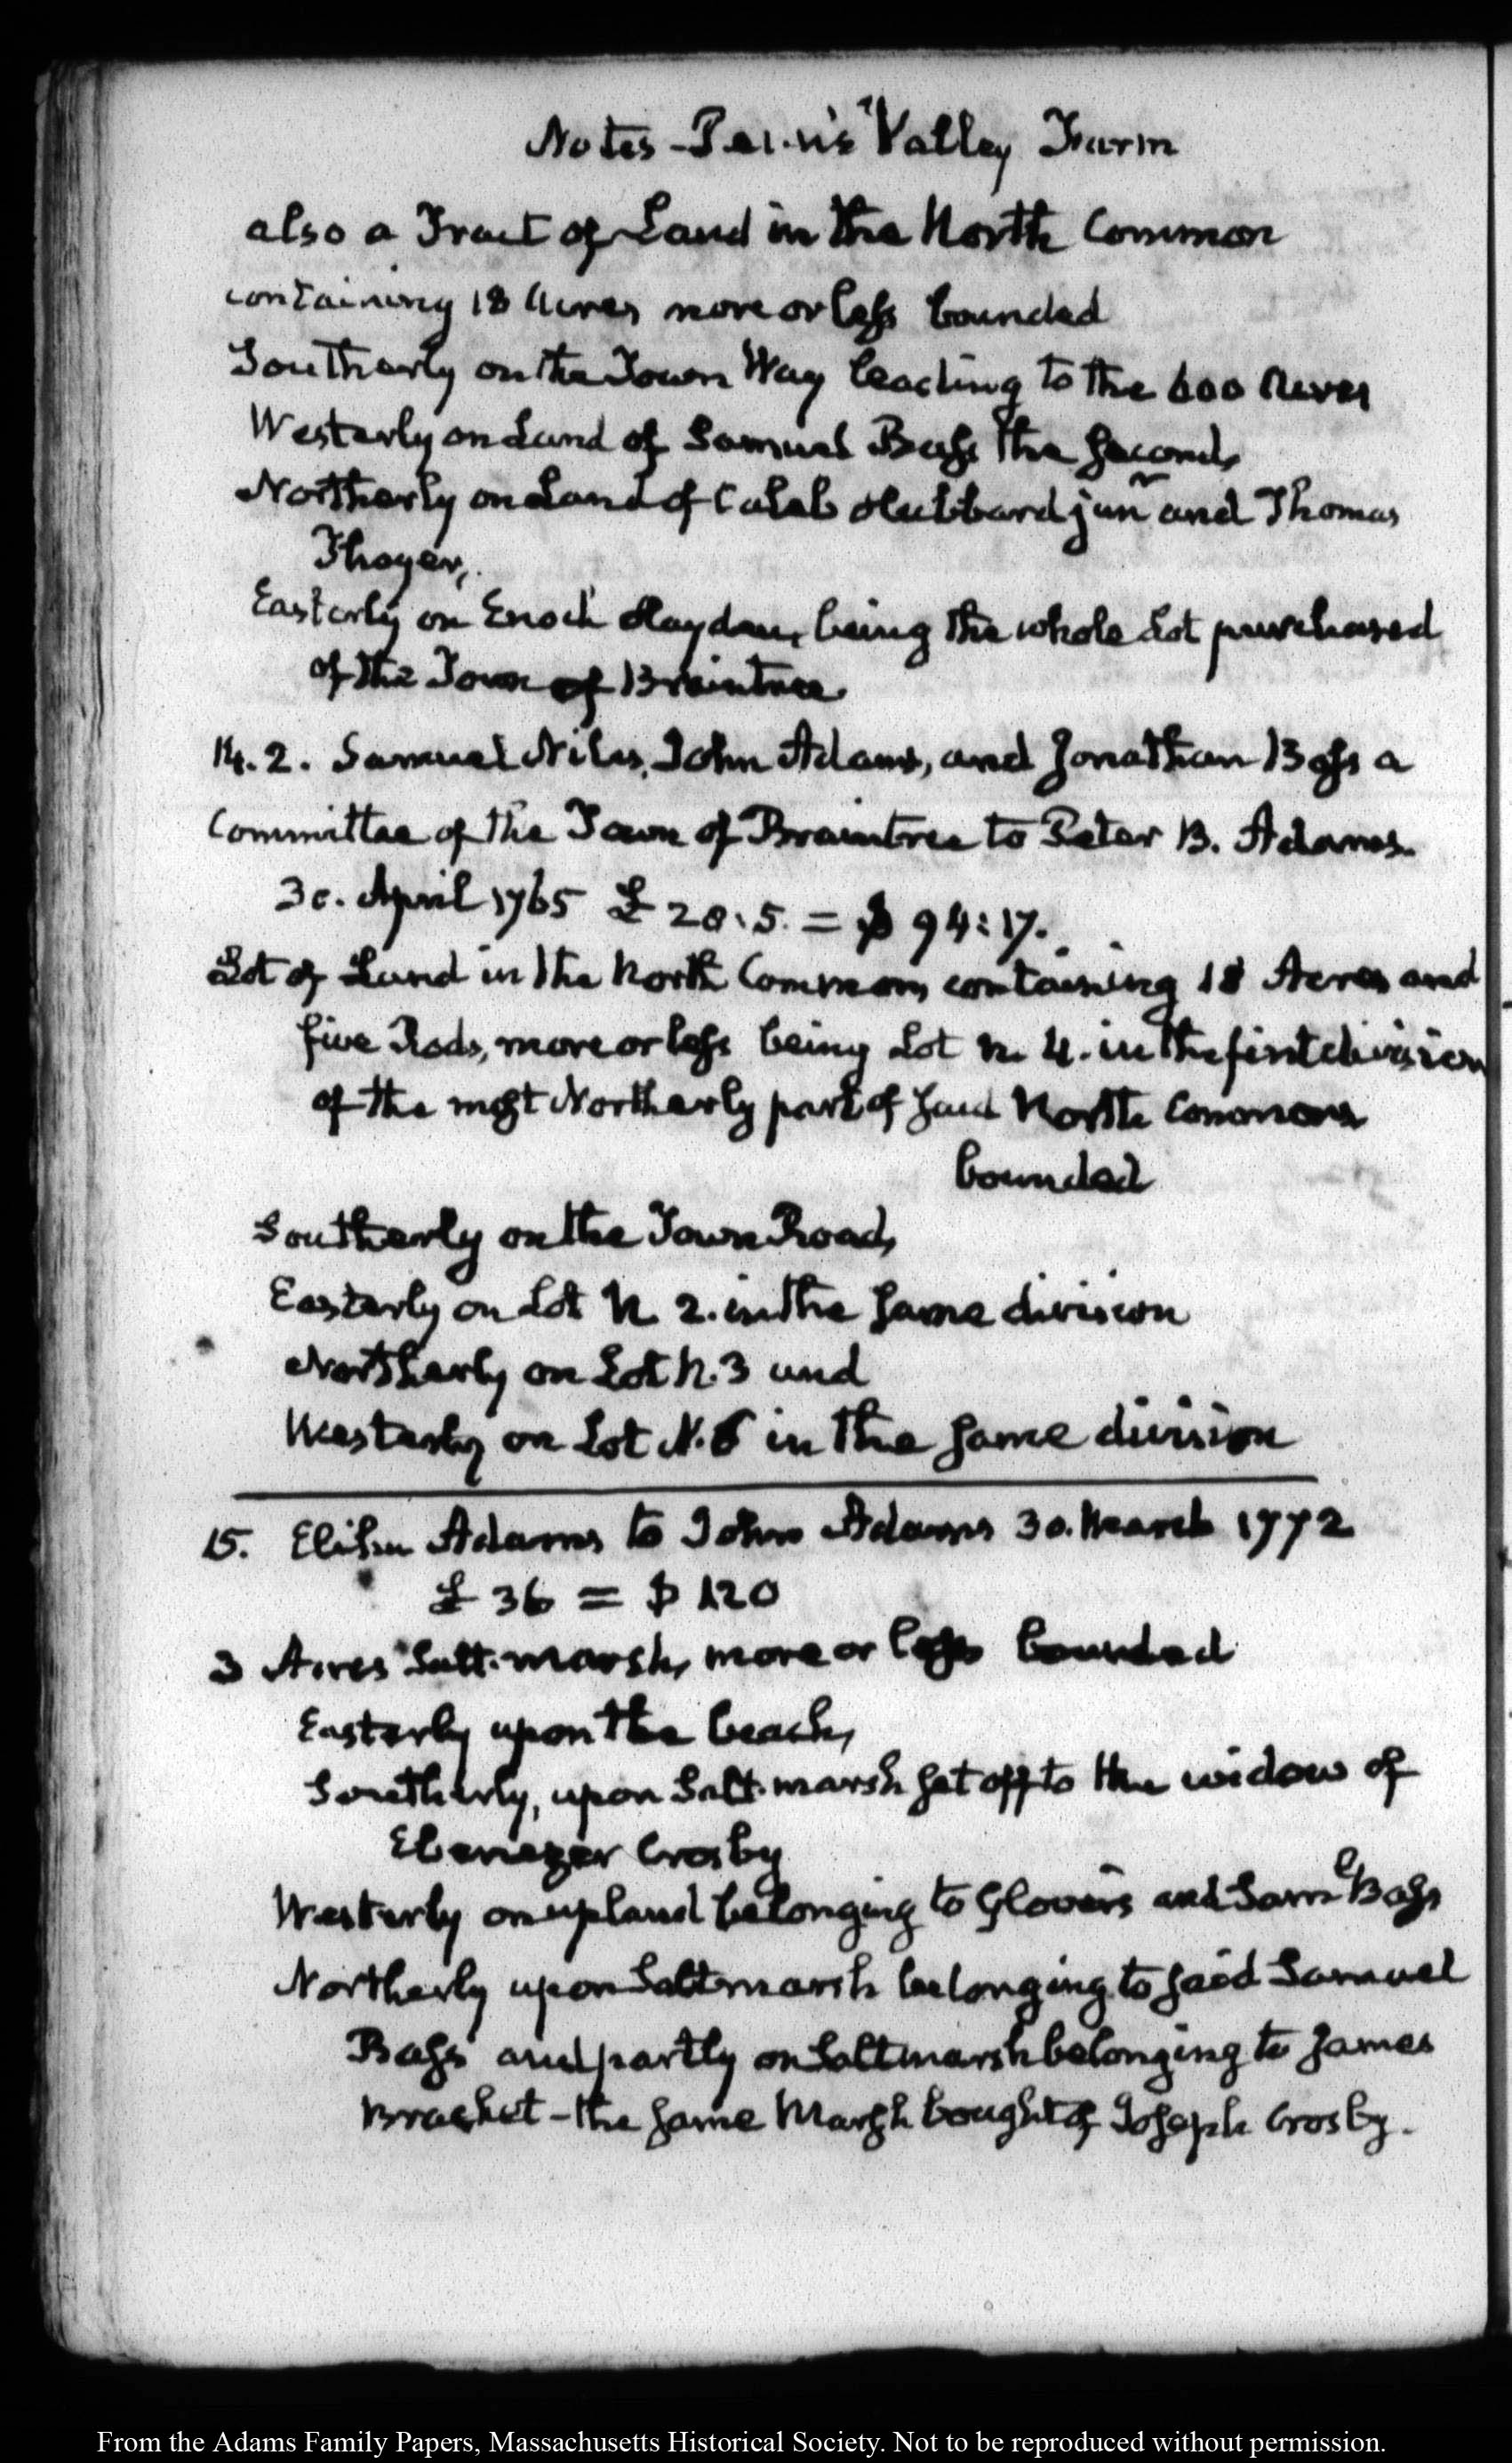 Notes - Penn's Valley Farm
also a Tract of Land in the North Common
containing 18 Acres more or less bounded
Southerly on the Town Way leading to the 600 Acres
Westerly on Land of Samuel Bass the Second,
Northerly on Land of Caleb Hubbard junr and Thomas
Thayer,
Easterly on Enoch Hayden, being the whole Lot purchased
of the Town of Braintree.
14. 2. Samuel Niles, John Adams, and Jonathan Bass a
Committee of the Town of Braintree to Peter B. Adams.
30. April 1765 £ 28.5. = $ 94:17.
Lot of Land in the North Commons containing 18 Acres and
five Rods, more or less being Lot N. 4. in the first division
of the most Northerly part of said North Commons
bounded
Southerly on the Town Road,
Easterly on Lot N. 2. in the same division
Northerly on Lot N. 3 and
Westerly on Lot N. 6 in the same division
15. Elihu Adams to John Adams 30. March 1772
£ 36 = $ 120
3 Acres Salt-marsh, more or less bounded
Easterly upon the beach,
Southerly, upon Salt-marsh set off to the widow of
Ebenezer Crosby
Westerly on upland belonging to Glovers and Saml Bass
Northerly upon Salt marsh belonging to said Samuel
Bass and partly on Salt marsh belonging to James
Bracket - the same Marsh bought of Joseph Crosby.
From the Adams Family Papers, Massachusetts Historical Society. Not to be reproduced without permission.